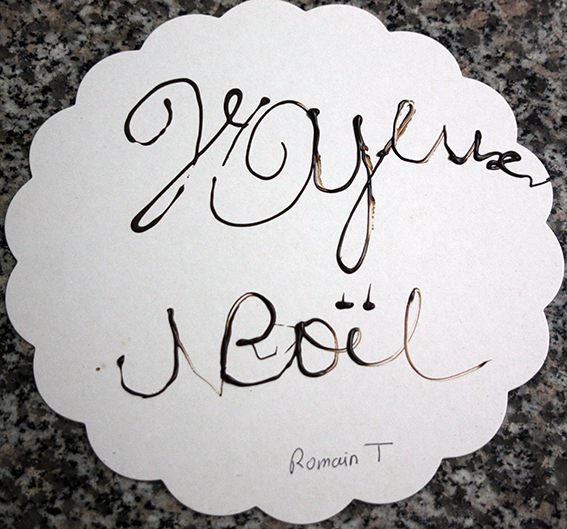 Joyeux
Noël
Romain T